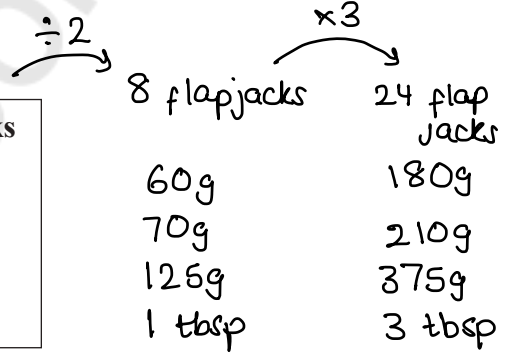 ÷2
×3
8 flapjacks
24 flap
jacks
ks
60g
180g
70g
210g
125g
375g
1 tbsp
3 tbsp